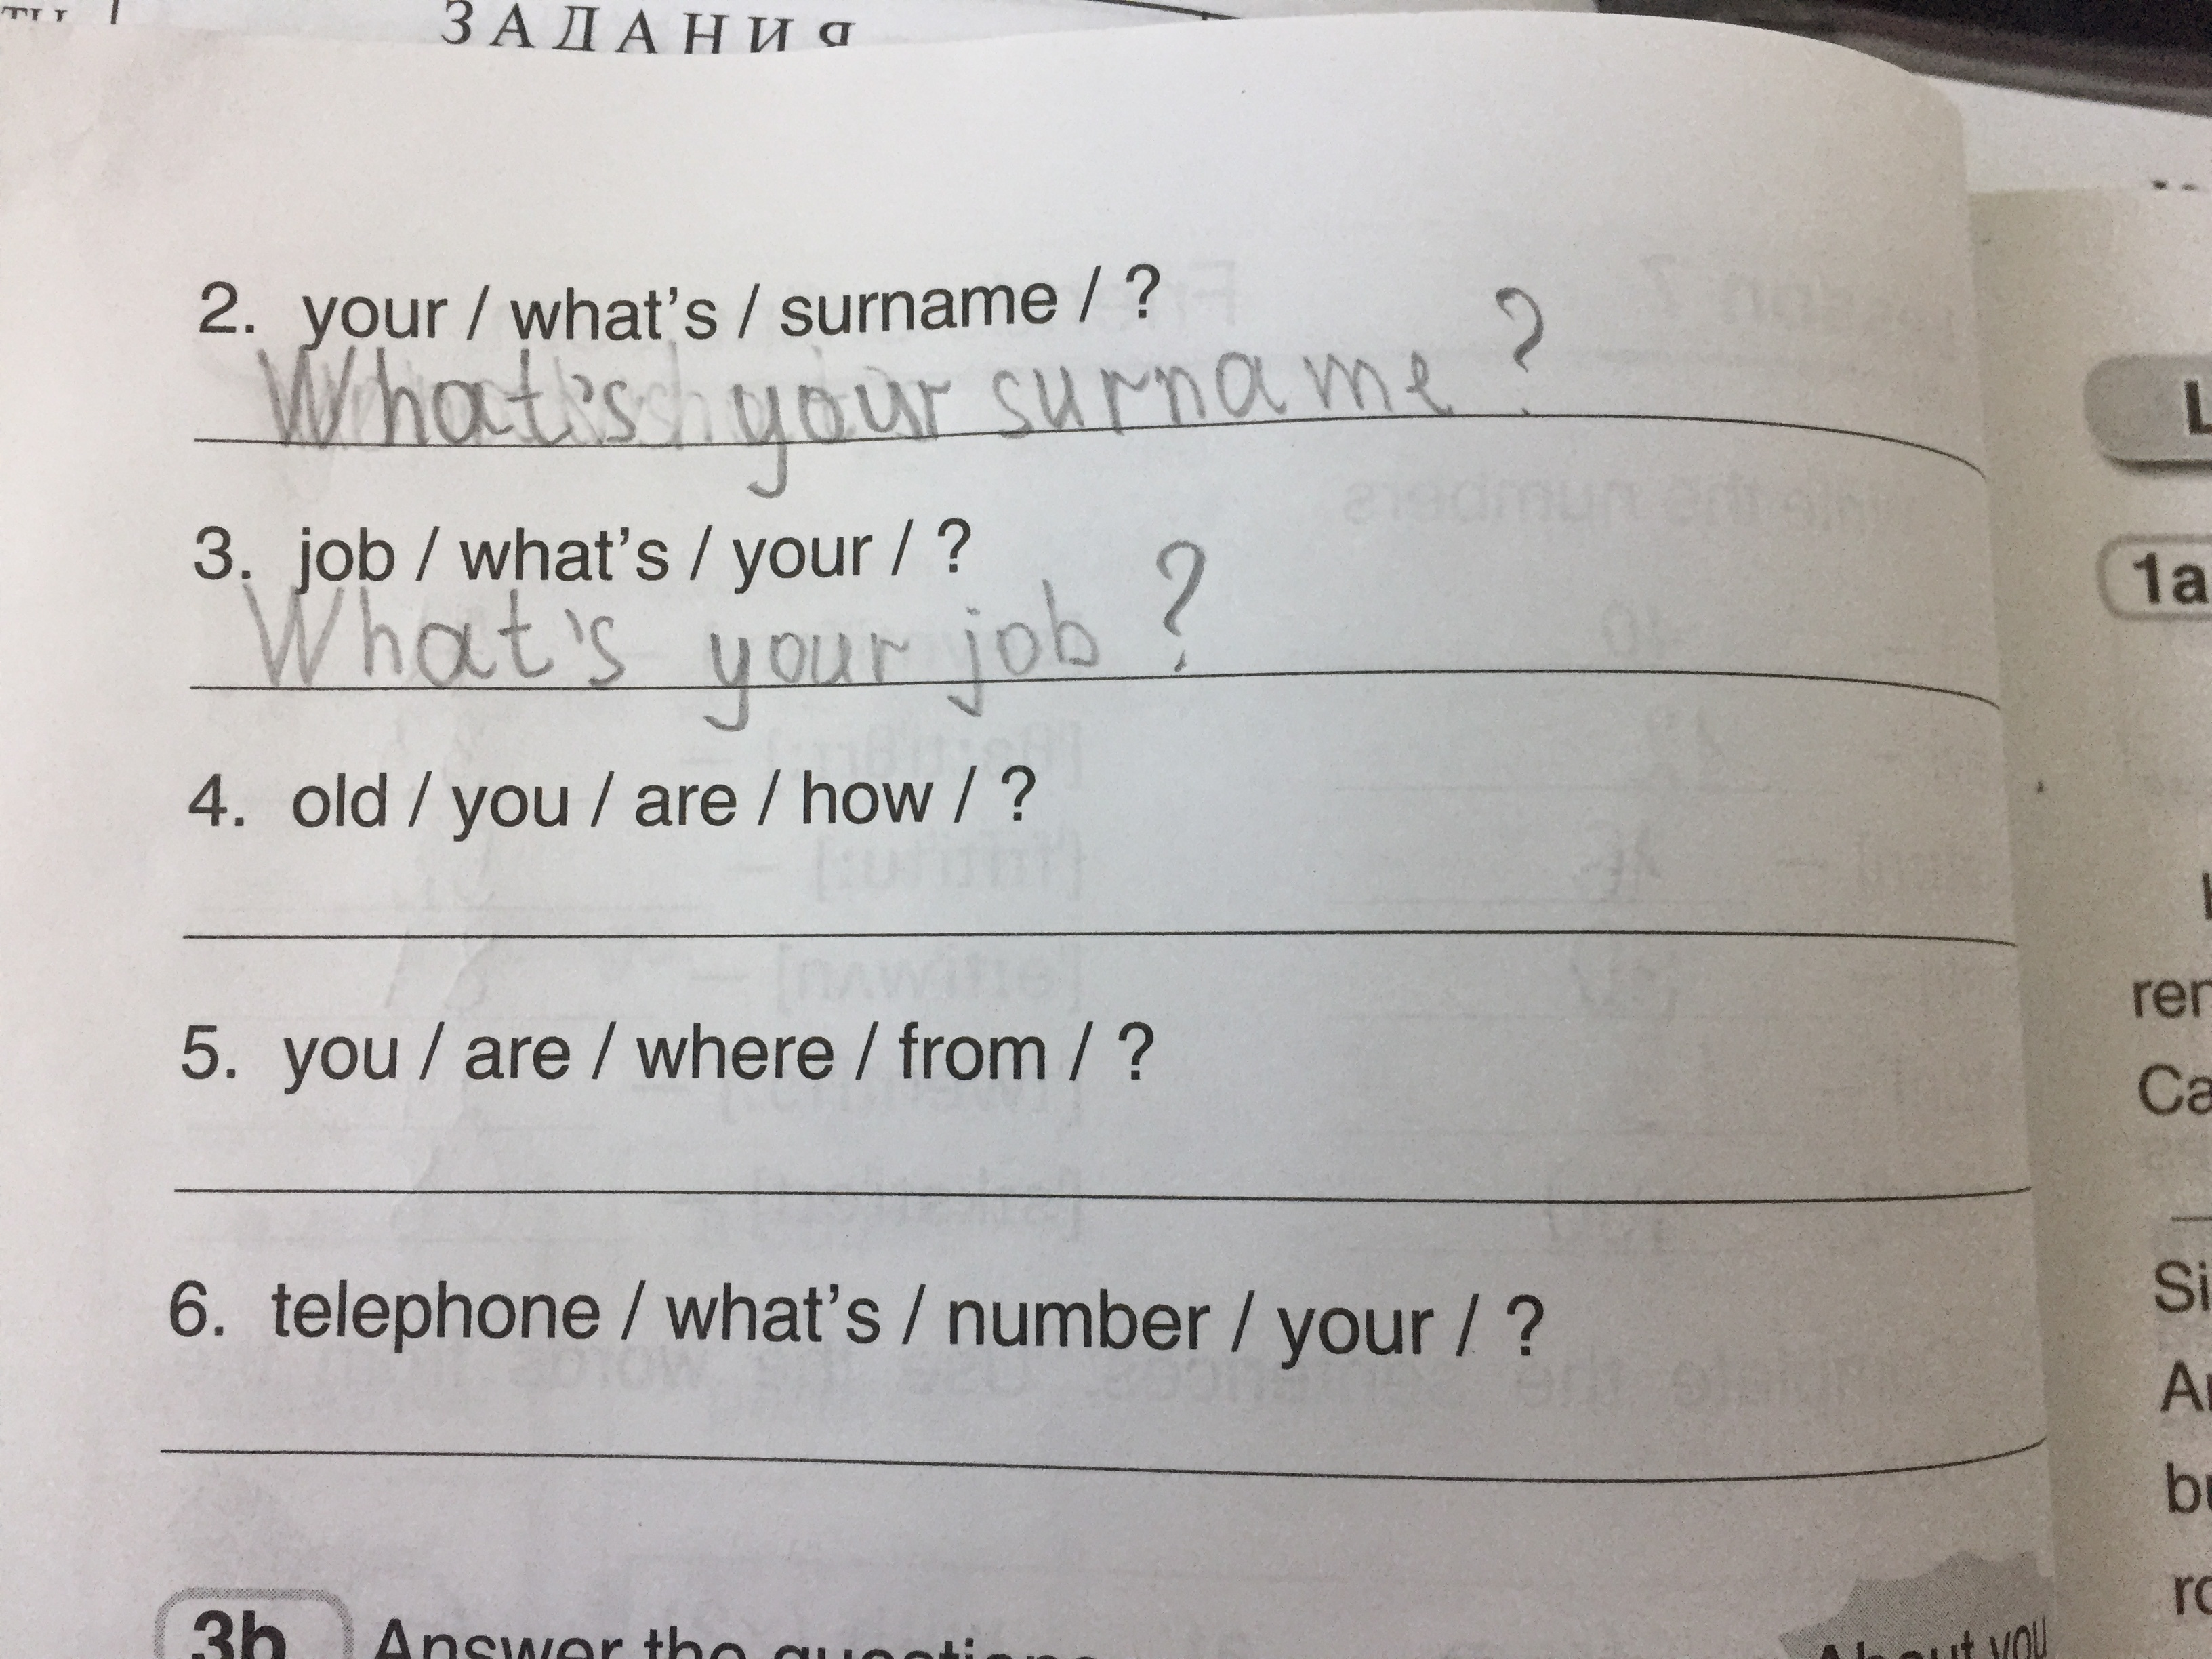 ЗАДАНИЯ
2. your / what's / surname / ?
What's your surname?
3. job / what's / your / ?
What's your job?
4. old / you / are / how / ?
5. you / are / where / from / ?
6. telephone / what's / number / your / ?
3b Answer the questions
About you
L
1a
rer
Ca
Si
Ar
bu
ro